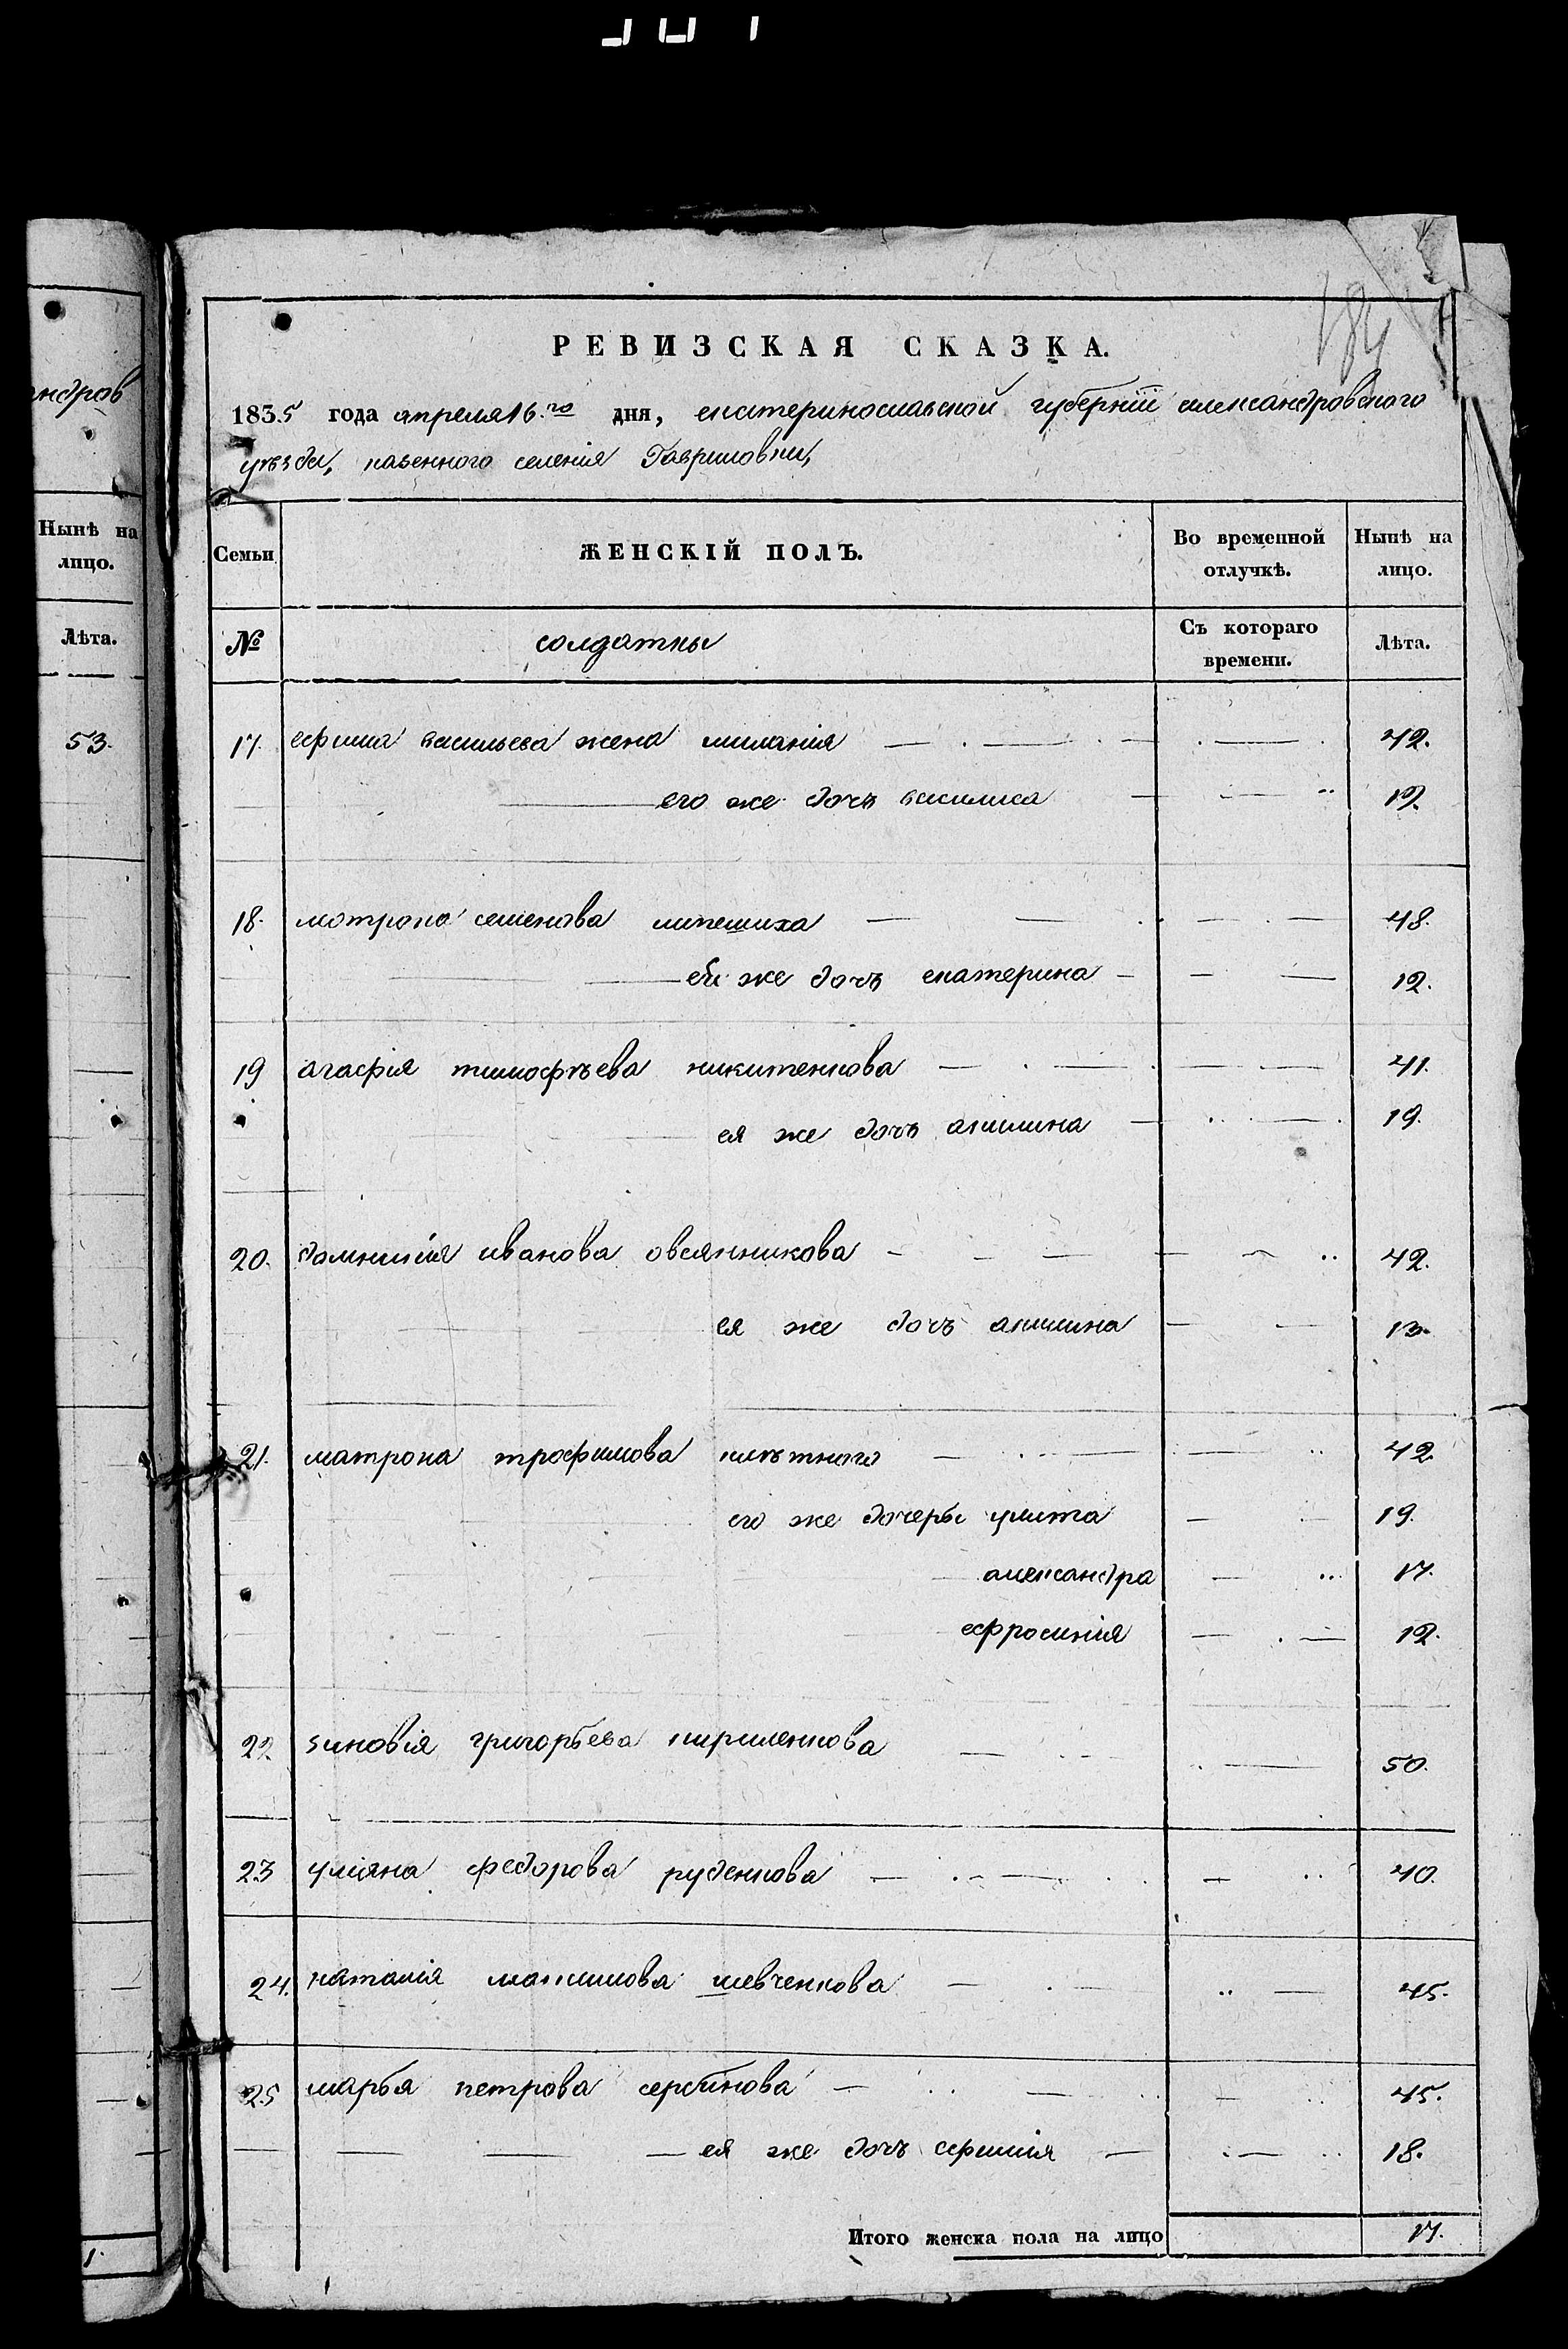 андров
Нынѣ на
лицо.
Лѣта.
53.
1.
184
РЕВИЗСКАЯ СКАЗКА.
1835 года апреля 16.го дня, екатеринославской губернїи александровского
уѣзда, казенного селенія Гавриловки,
Семьи
ЖЕНСКІЙ ПОЛЪ.
Во временной отлучкѣ.
Нынѣ на лицо.
№
солдатки
Съ котораго времени.
Лѣта.
17. ефима васильева жена миланія 42.
его же дочь василиса 12.
18. мотрона семенова 48.
ей же дочъ екатерина 12.
19 агафія тимофѣева никитенкова 41.
ея же дочъ акилина 19.
20. домникія иванова овсянникова 42.
ея же дочъ акилина 13.
21. матрона трофимова 42.
его же дочеры улита 19.
александра 17.
ефросинія 12.
22 зиновія григорьева кириленкова 50.
23 уліяна федорова руденкова 40.
24. наталія максимова шевченкова 45.
25 марья петрова 45.
ея же дочъ ефимія 18.
Итого женска пола на лицо 17.